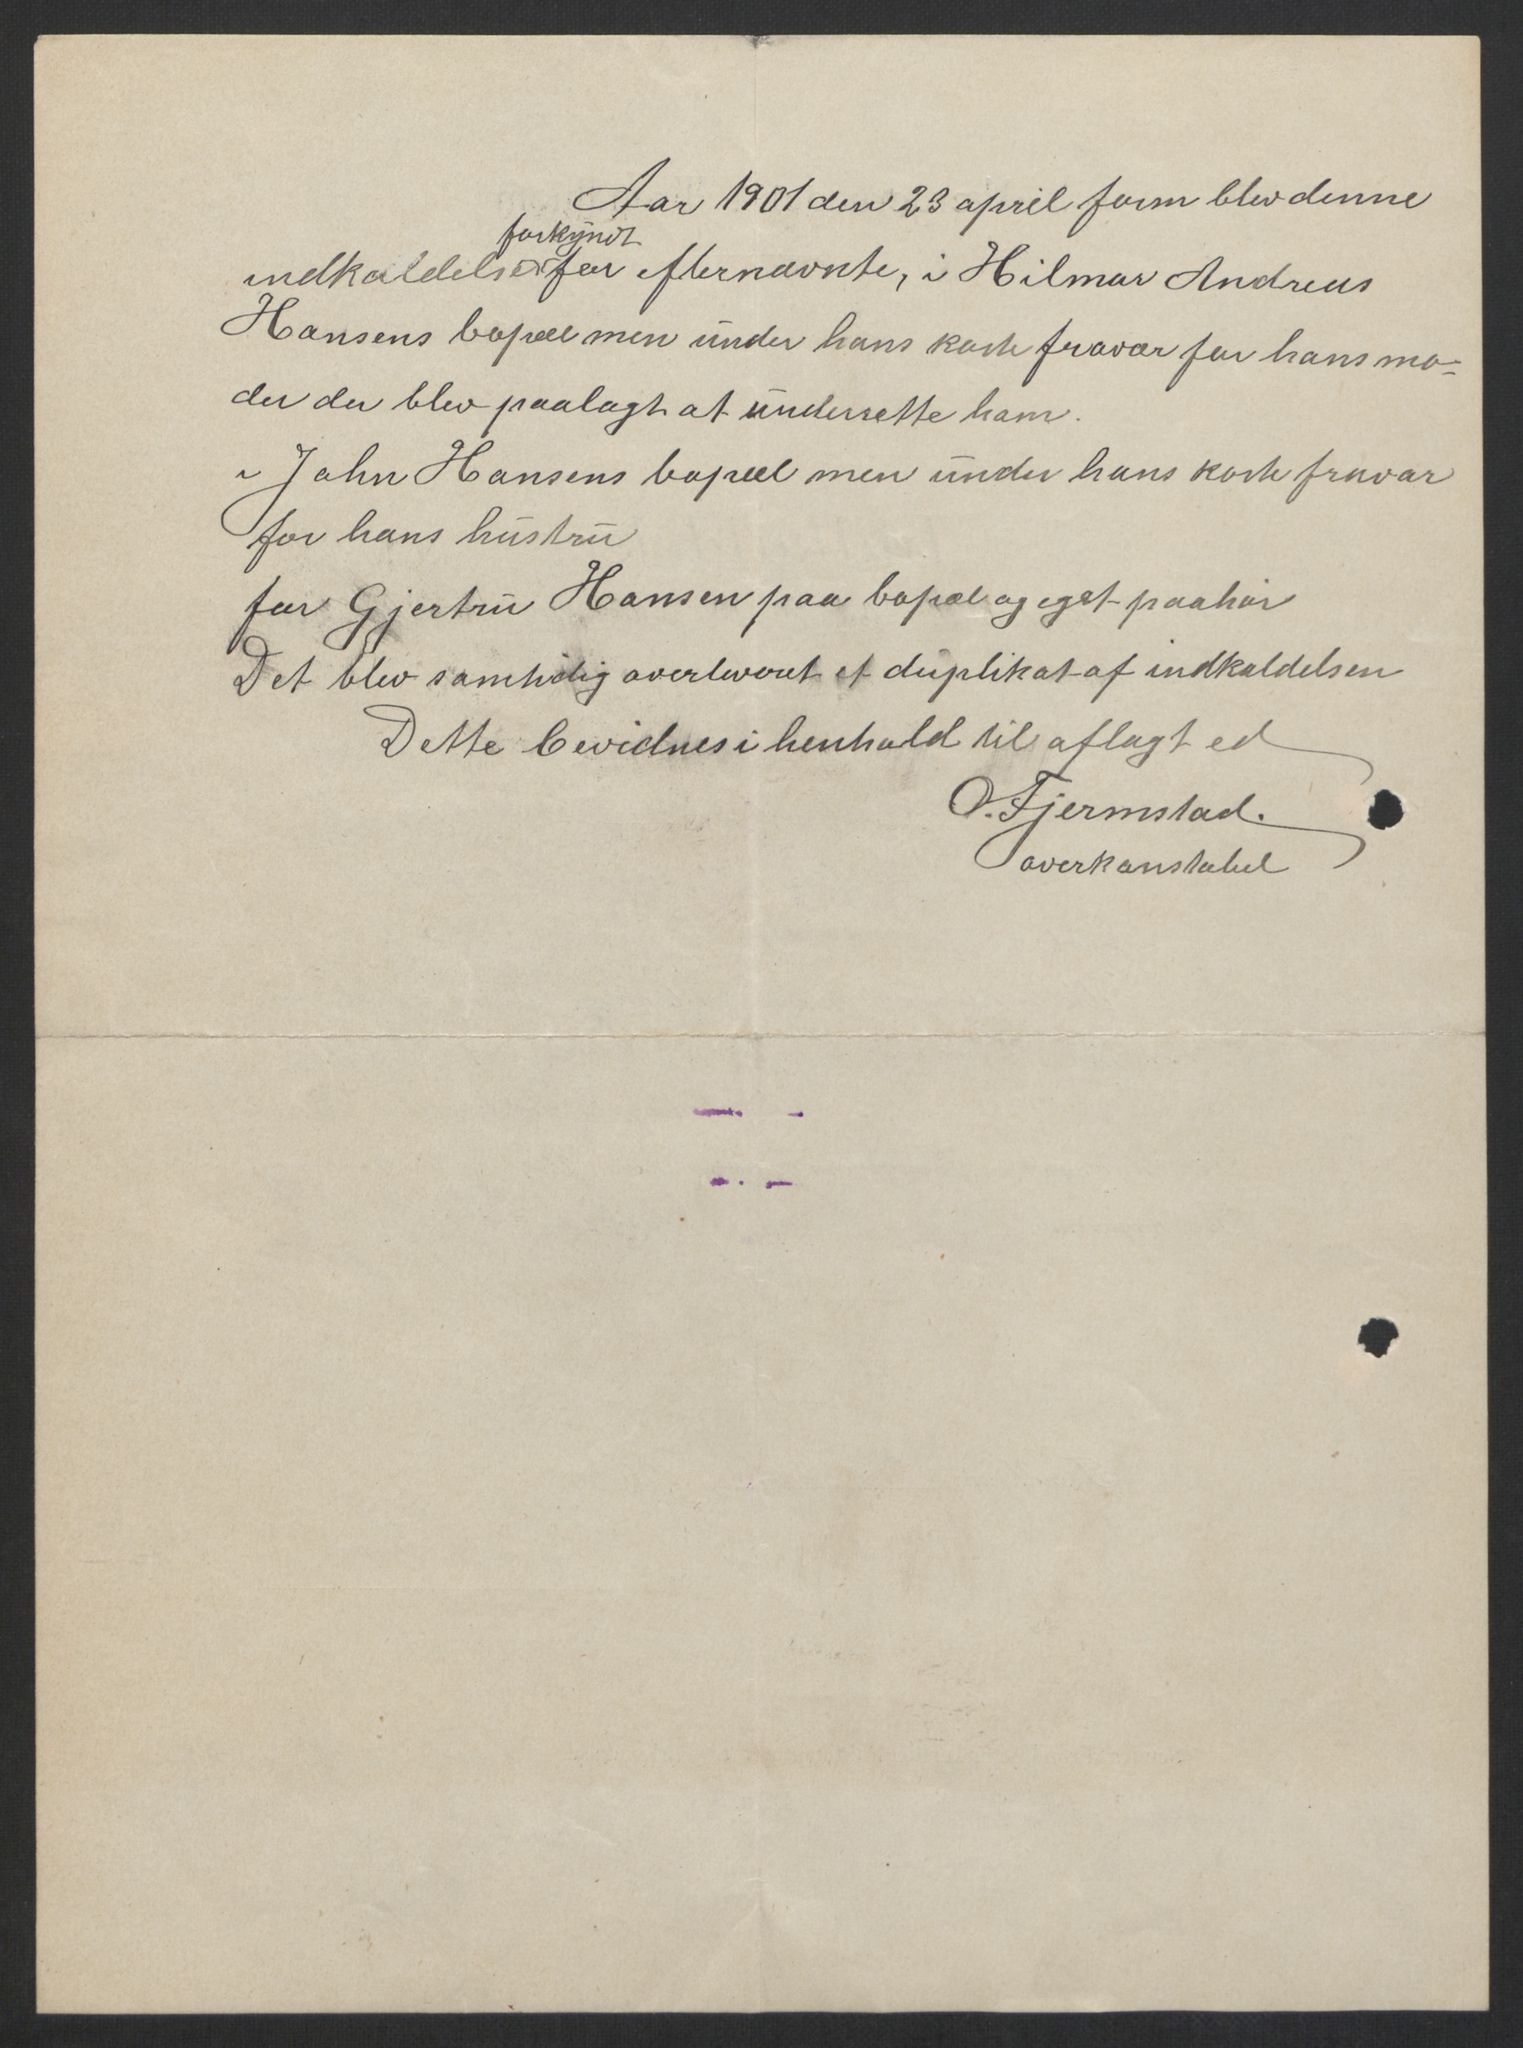 Aar 1901 den 23 april form blev denne
forkyndt
indkaldelse for efternævnte, i Hilmar Andreas
Hansens bopæl men under hans korte fravær for hans mo-
der der blev paalagt at underrette ham.
i John Hansens bopæl men under hans korte fravær
for hans hustru
for Gjertru Hansen paa bopæl og eget paahør
Det blev samtidig overleveret et duplikat af indkaldelsen
Dette bevidnes i henhold til aflagt ed
O. Fjermstad.
overkonstabel